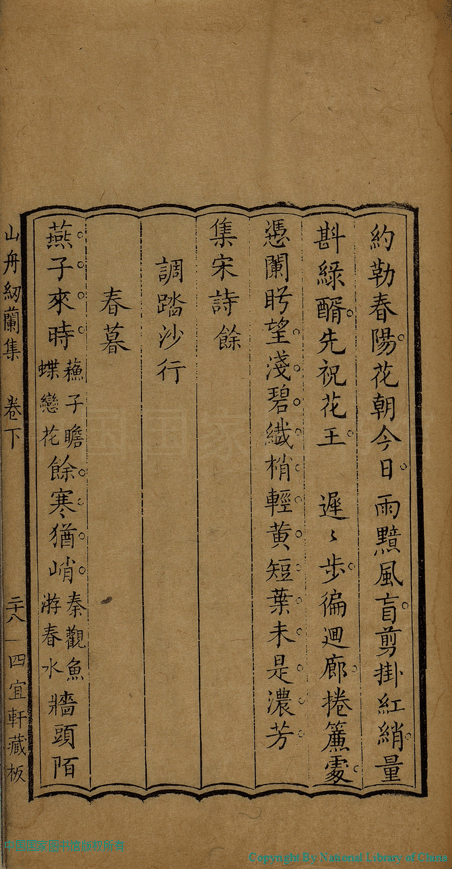 約勒春陽花朝今日雨黯風盲剪掛紅綃量
斟綠醑先祝花王 遲〻步徧迴廊捲簾處
憑闌盻望淺碧纖梢輕黃短葉未是濃芳
集宋詩餘
調踏沙行
春暮
燕子來時蘓子瞻蝶戀花餘寒猶峭秦觀魚游春水牆頭陌
山舟紉蘭集 卷下 二十八 四宜軒藏板
Copyright By National Library of China